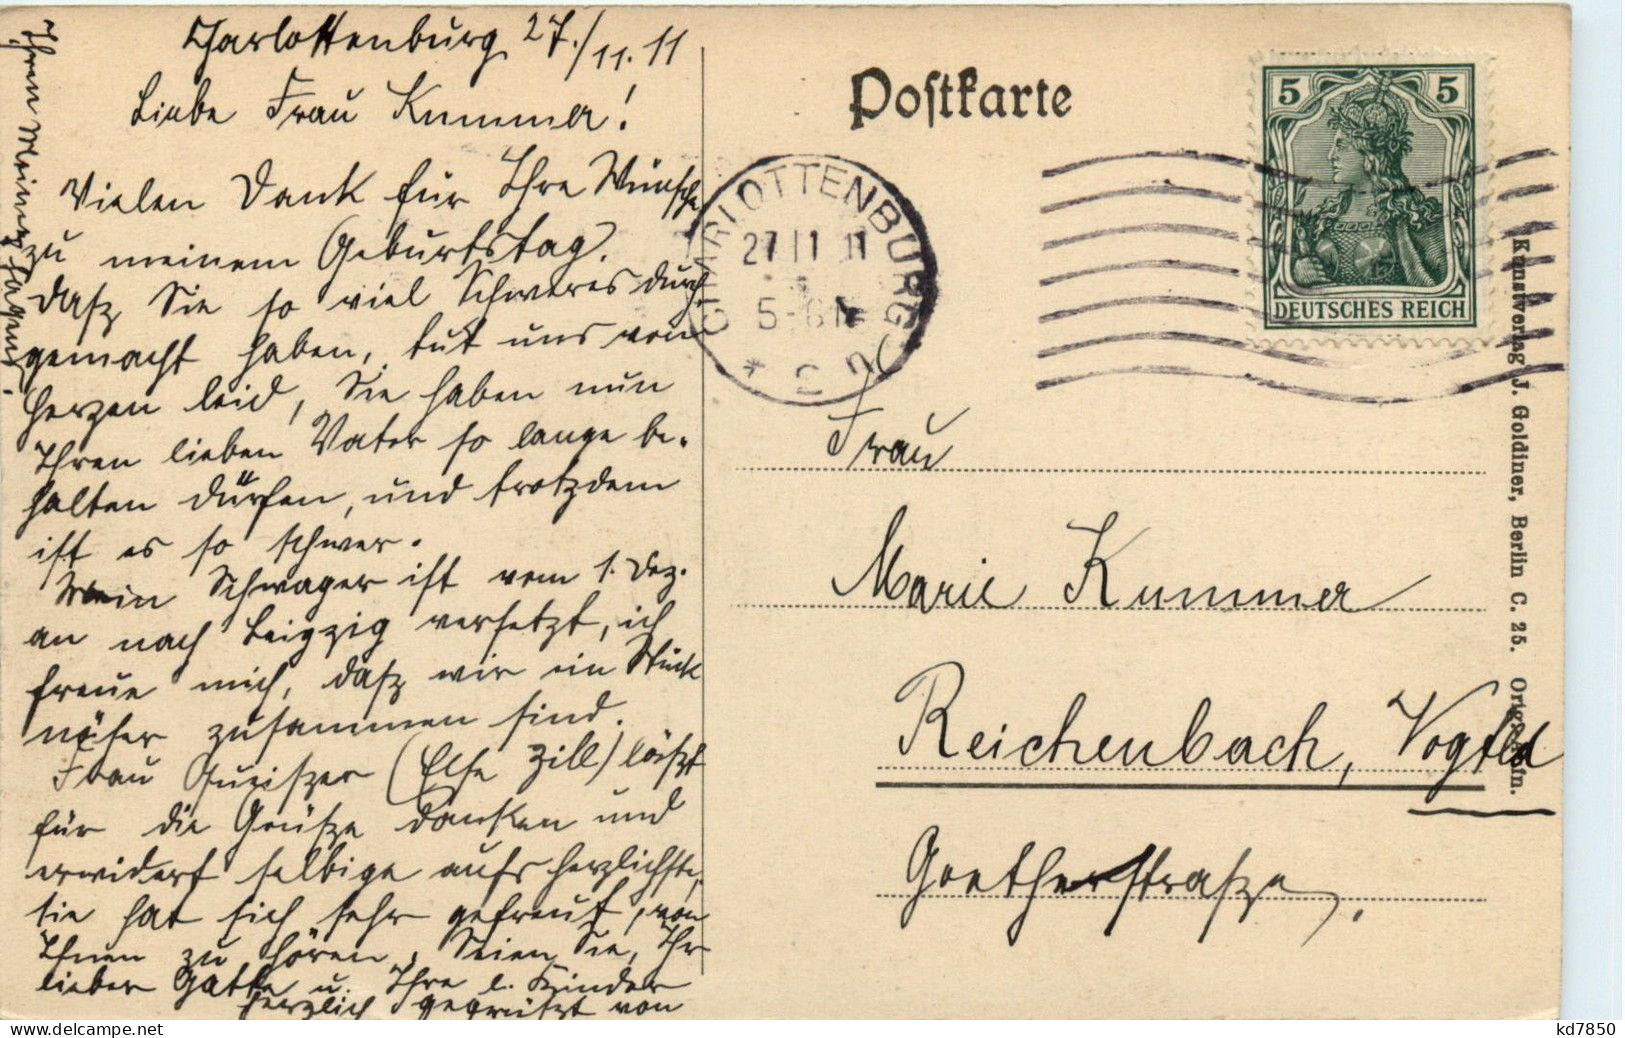 Charlottenburg 27./11.11
Liebe Frau Kummer!
Vielen Dank für Ihre Wünsche
zu meinem Geburtstag.
Dasz Sie so viel Schweres durch-
gemacht haben, tut uns von
Herzen leid, Sie haben nun
Ihren lieben Vater so lange be-
halten dürfen, und trotzdem
ist es so schwer.
Mein Schwager ist vom 1. Dez.
an nach Leipzig versetzt, ich
freue mich, dasz wir ein Stück
näher zusammen sind.
Frau (Else Zill) läszt
für die Grüsze danken und
erwidert selbige aufs herzlichste,
sie hat sich sehr gefreut, von
Ihnen zu hören. Seien Sie, Ihr
lieber Gatte u. Ihre l. Kinder
herzlich gegrüszt von
Ihren
Postkarte
CHARLOTTENBURG
27 11 11
5-6 N
* 2
5 5
DEUTSCHES REICH
Frau
Marie Kummer
Reichenbach, Vogtld
Goethestrasze.
Kunstverlag J. Goldiner, Berlin C. 25.
kd7850